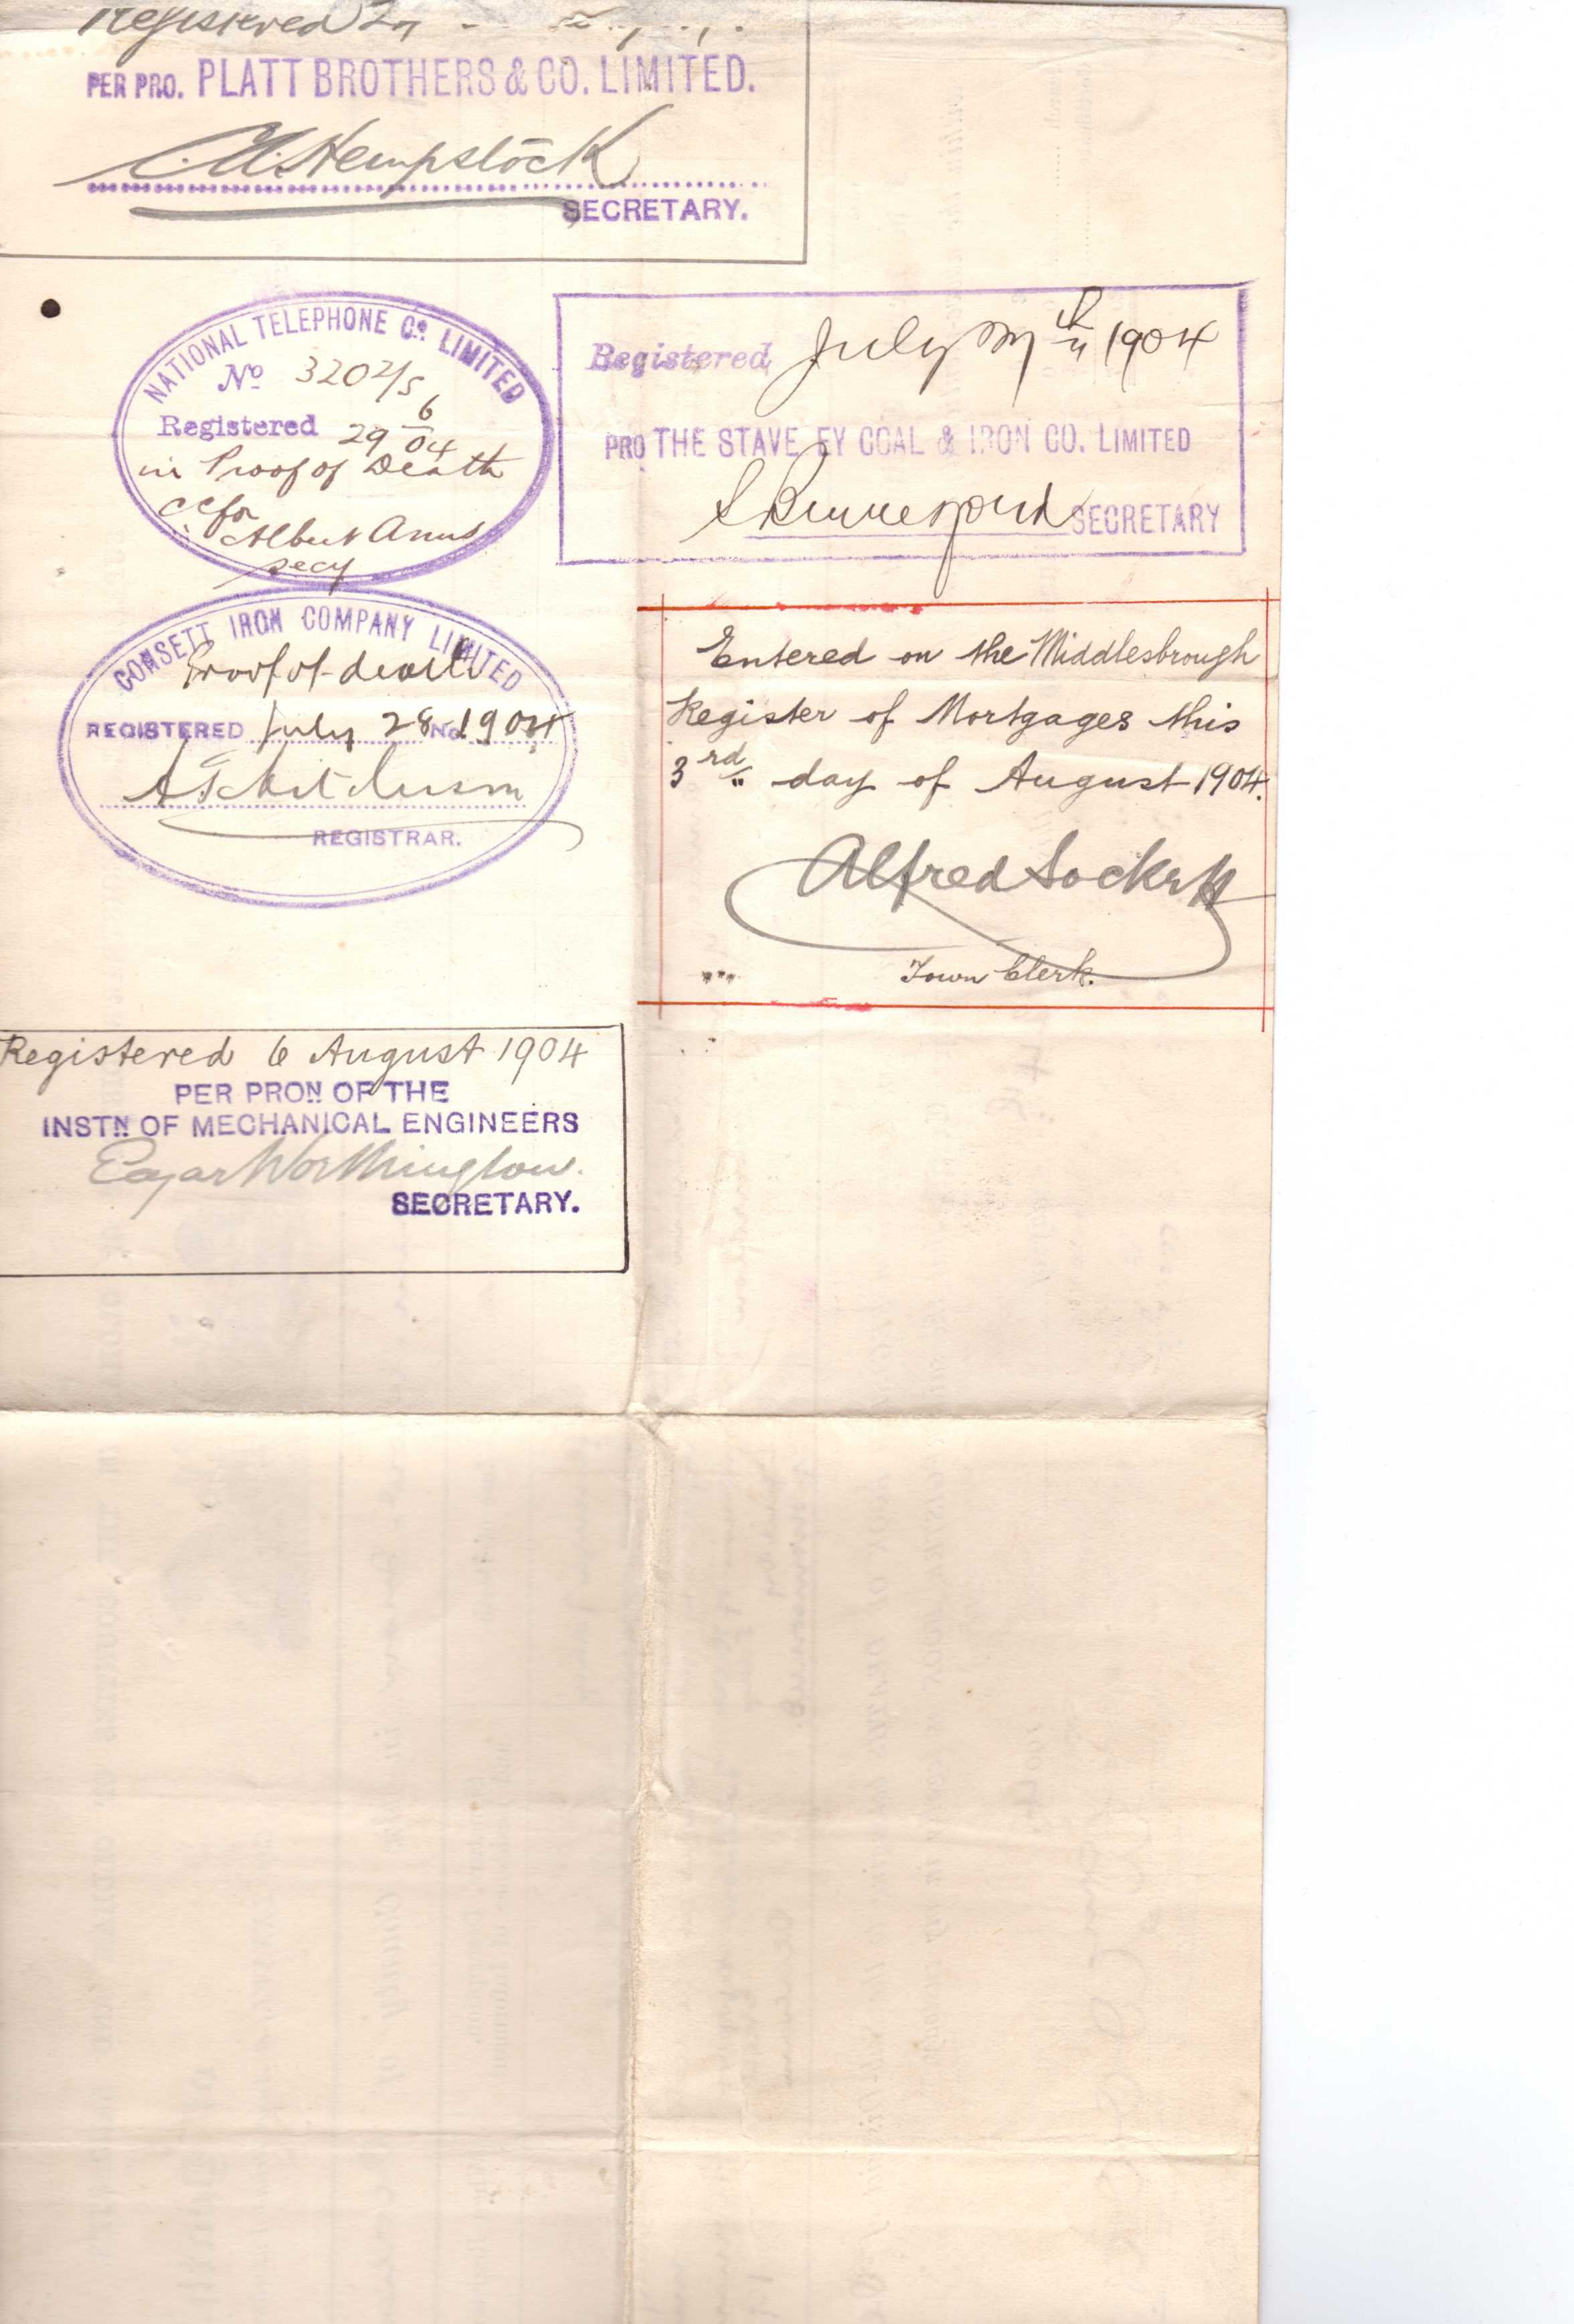 Registered
PER PRO. PLATT BROTHERS & CO. LIMITED.
Hempstock
SECRETARY.
NATIONAL TELEPHONE Co. LIMITED
No 3202/5
Registered 29 6/04
in Proof of Death
Albert Anns
Secy
Registered July 1904
PRO THE STAVE EY COAL & IRON CO. LIMITED
SECRETARY
CONSETT IRON COMPANY LIMITED
Proof of death
REGISTERED July 28 No. 1904
REGISTRAR.
Entered on the Middlesbrough
Register of Mortgages this
3rd day of August 1904.
Alfred Sockett
Town Clerk.
Registered 6 August 1904
PER PRON OF THE
INSTN OF MECHANICAL ENGINEERS
Edgar Worthington.
SECRETARY.